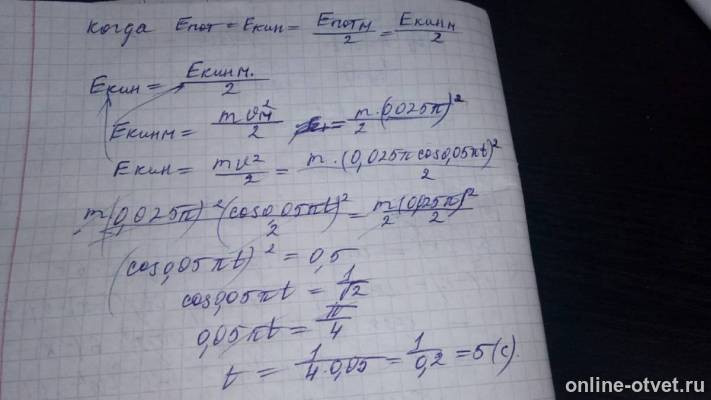 когда Eпот = Eкин = Eпотм/2 = Eкинм/2
Eкин = Eкинм./2
Eкинм = mυм²/2 = m·(0,025π)²/2
Eкин = mυ²/2 = m·(0,025π cos0,05πt)²/2
m(0,025π)²(cos0,05πt)²/2 = m(0,025π)²/2·2
(cos0,05πt)² = 0,5
cos0,05πt = 1/√2
0,05πt = π/4
t = 1/4·0,05 = 1/0,2 = 5(с).
online-otvet.ru